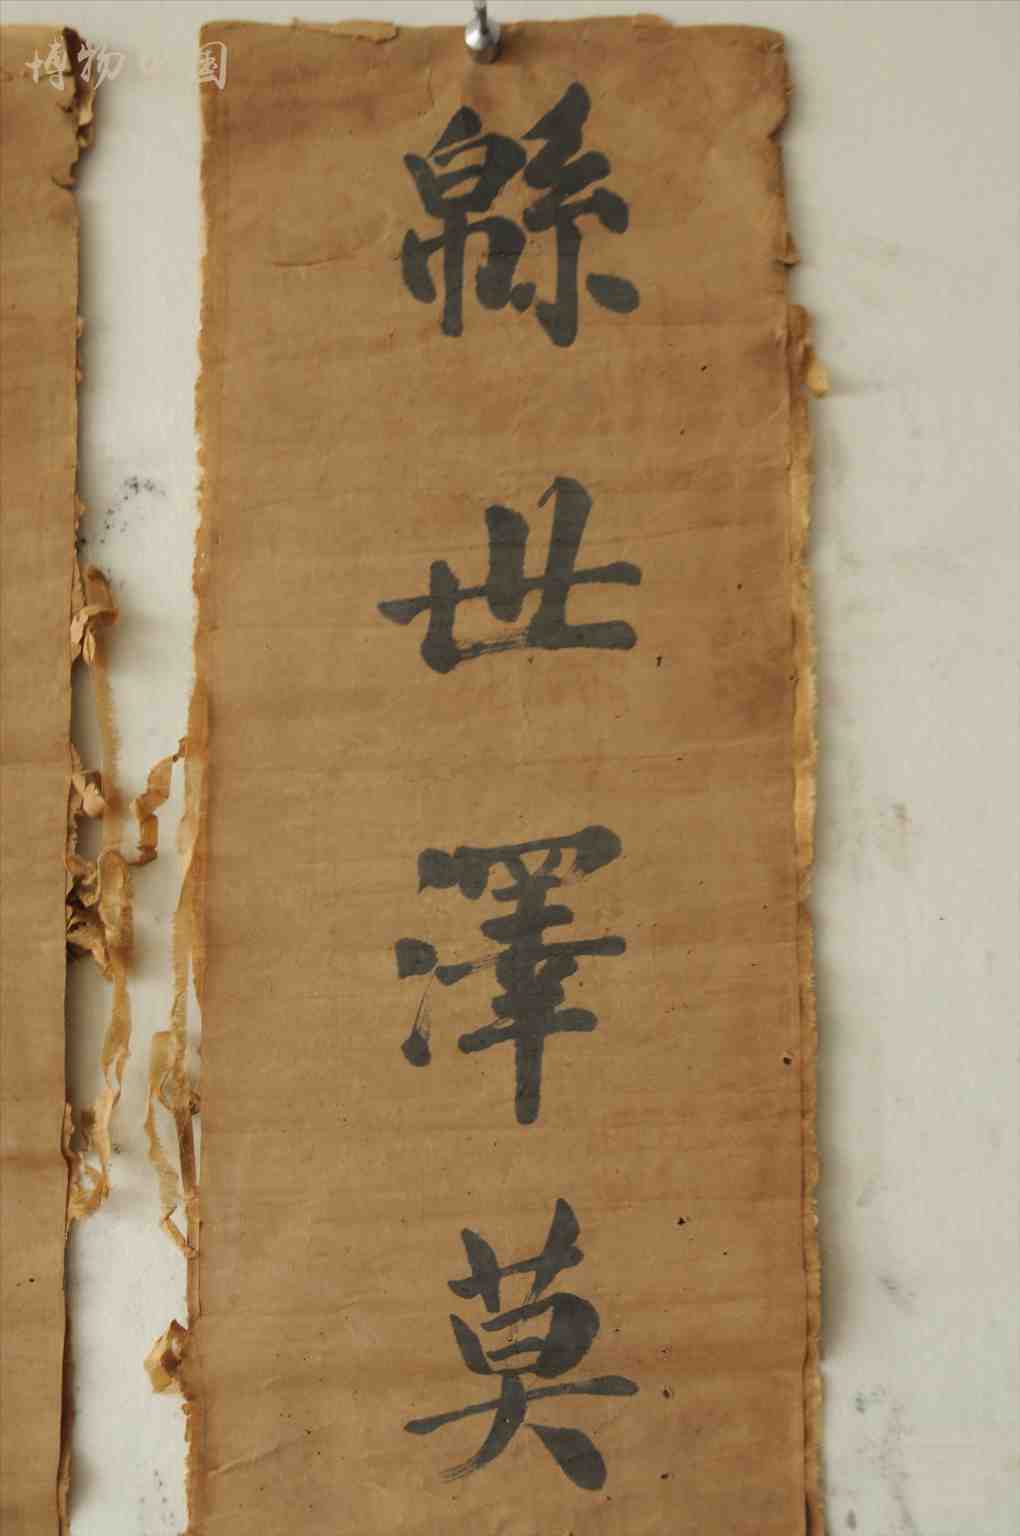 博物中国
緜世澤莫